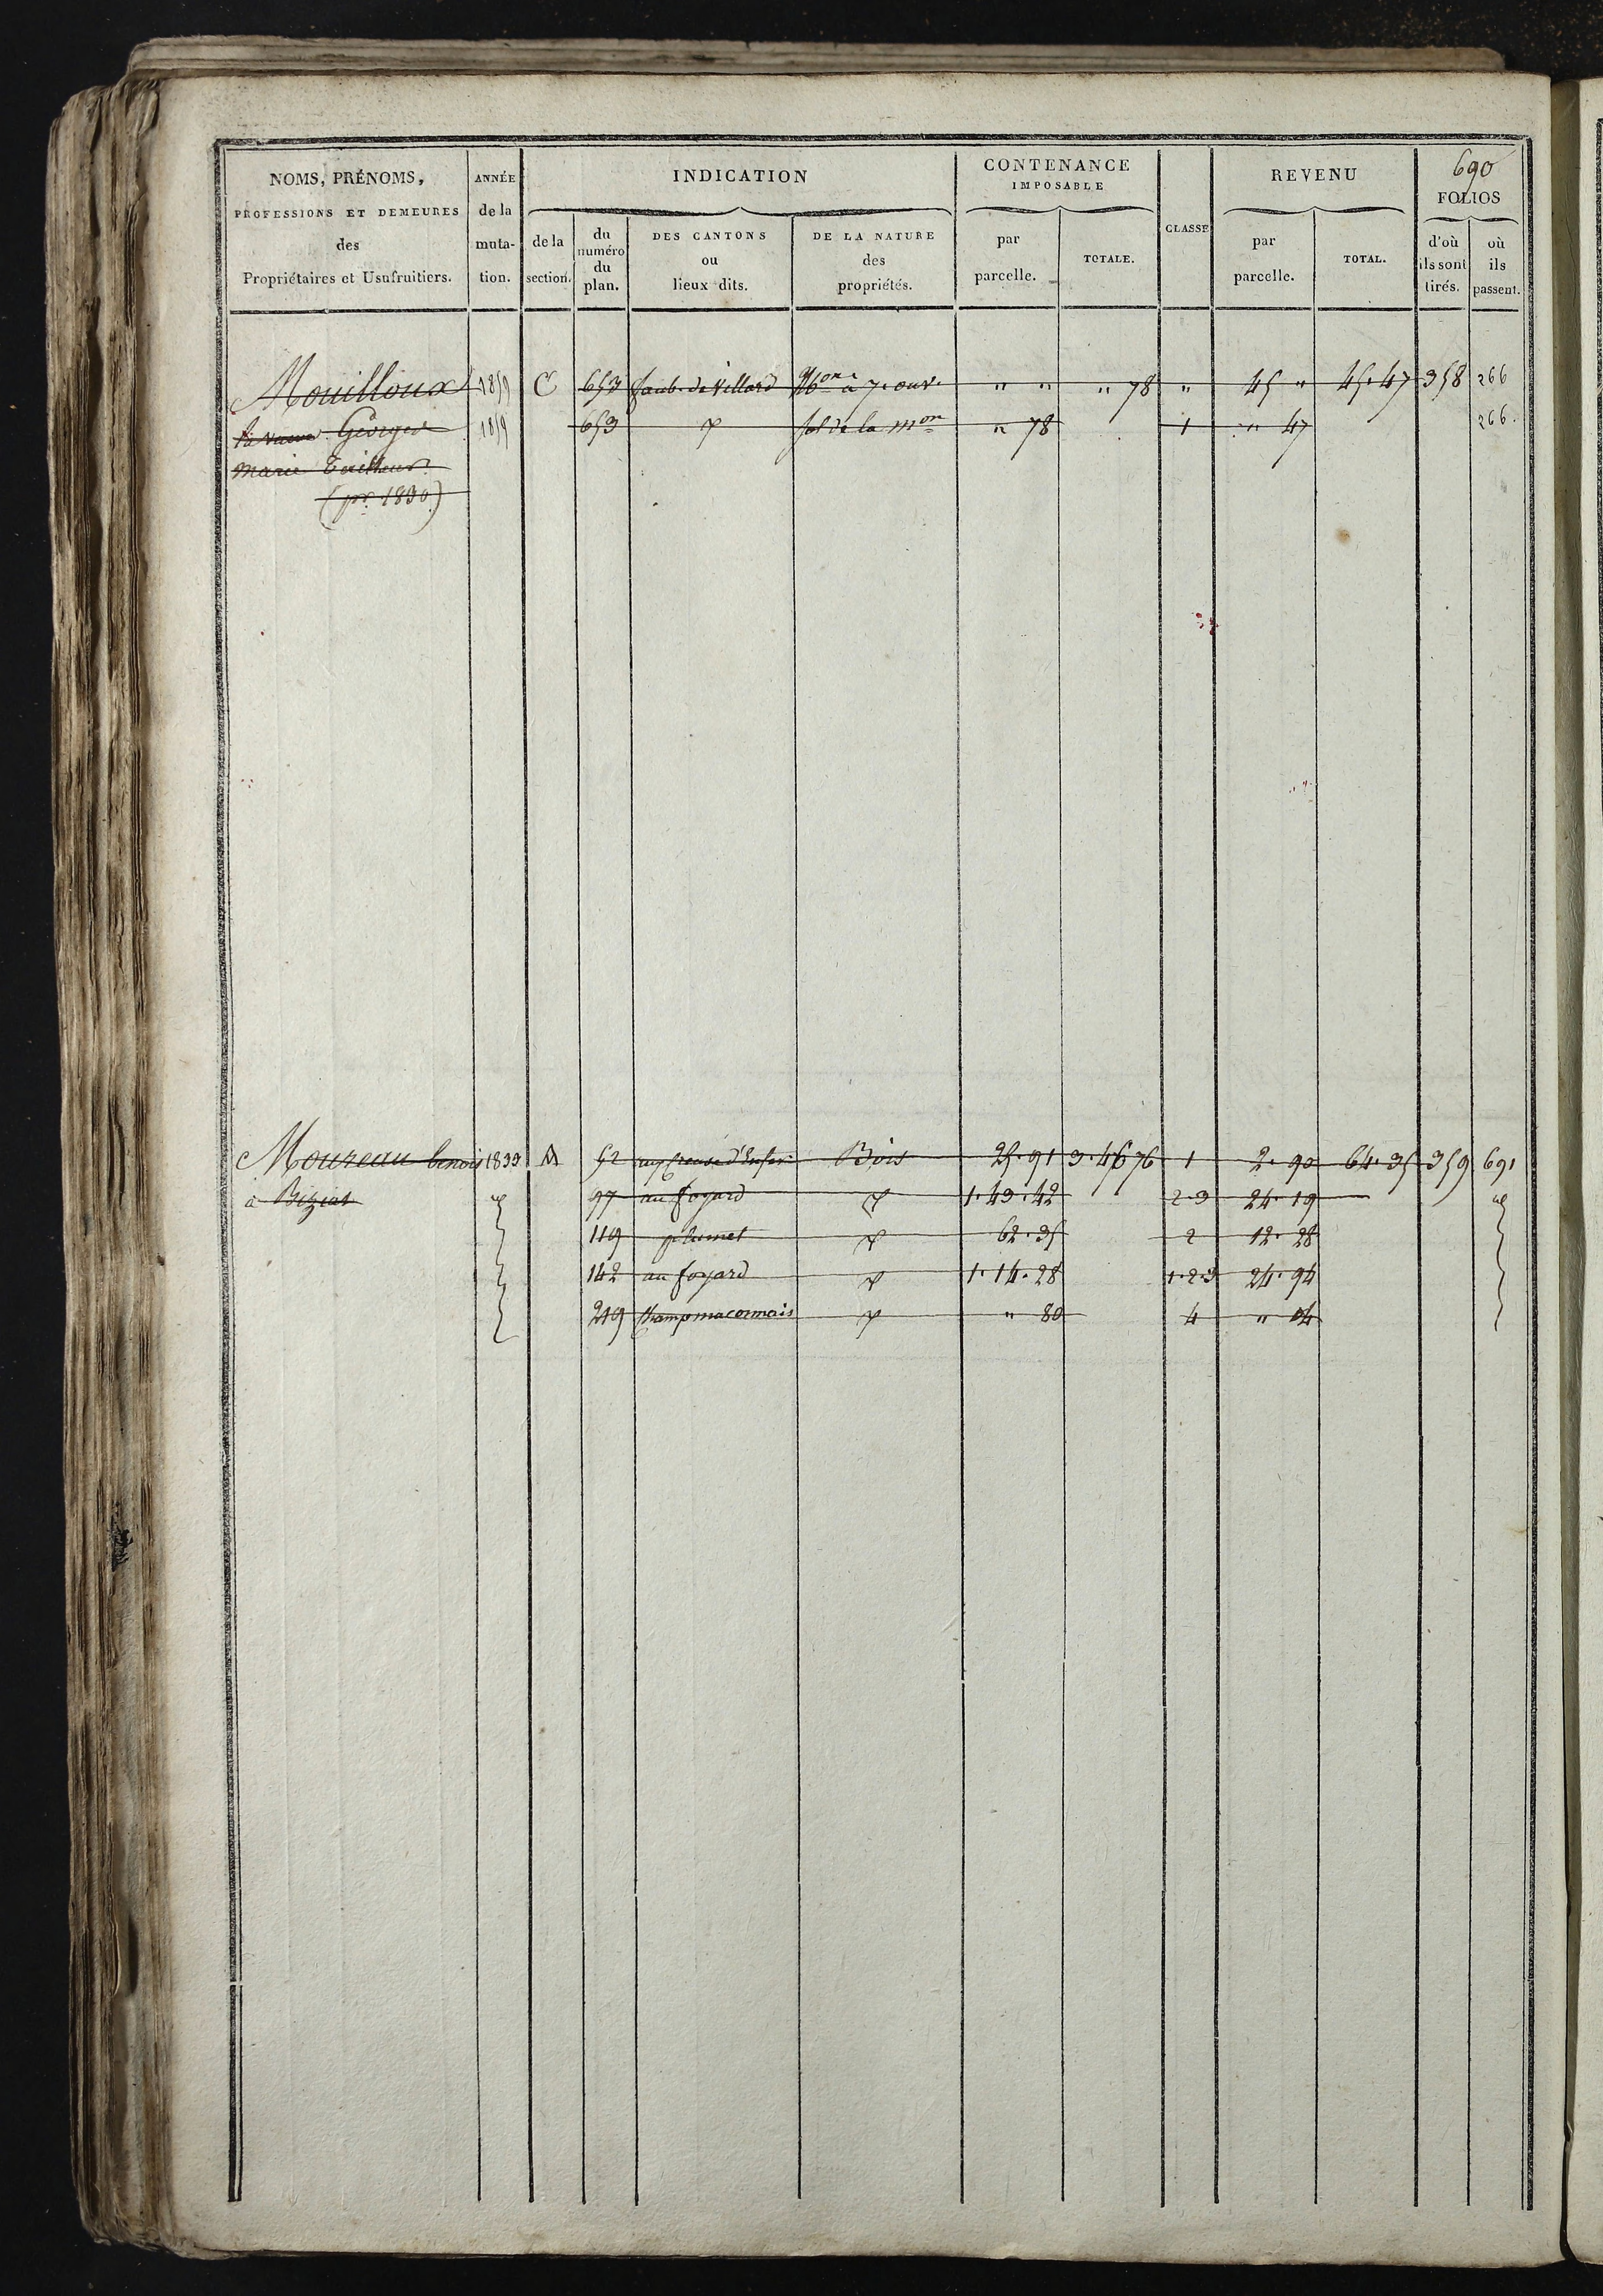 690
NOMS, PRÉNOMS, PROFESSIONS ET DEMEURES des Propriétaires et Usufruitiers.
ANNÉE de la muta- tion.
INDICATION
de la section.
du numéro du plan.
DES CANTONS ou lieux dits.
DE LA NATURE des propriétés.
CONTENANCE IMPOSABLE
par parcelle.
TOTALE.
CLASSE
REVENU
par parcelle.
TOTAL.
FOLIOS
d'où ils sont tirés.
où ils passent.
Mouilloux 1859 C 653 faub. de Villard Mon à 7. ouv. " " " 78 " 45 " 45.47 358 266
la veuve Georges 1859 653 d° sol de la mon " 78 1 " 47 266.
Marie
(pr. 1830)
Moureau benoit 1833 A 52 creuse d'Enfer Bois 25.91 3.46 76 1 2.90 64.35 359 691
à Biziat 97 au foyard d° 1.43.42 2.3 24.19
119 plumet d° 62.35 2 12.28
142 au foyard d° 1.14.28 1.2.3 24.94
219 Champ maconnais d° " 80 4 " 04